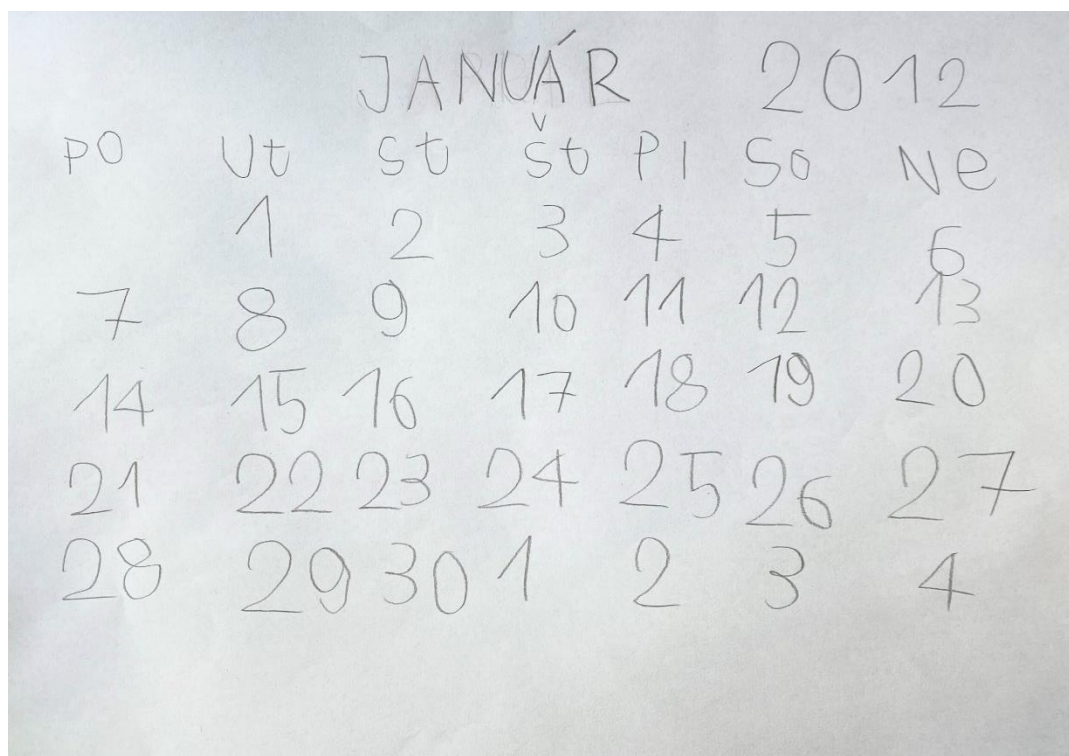 JANUÁR 2012
PO Ut St Št PI So Ne
1 2 3 4 5 6
7 8 9 10 11 12 13
14 15 16 17 18 19 20
21 22 23 24 25 26 27
28 29 30 1 2 3 4